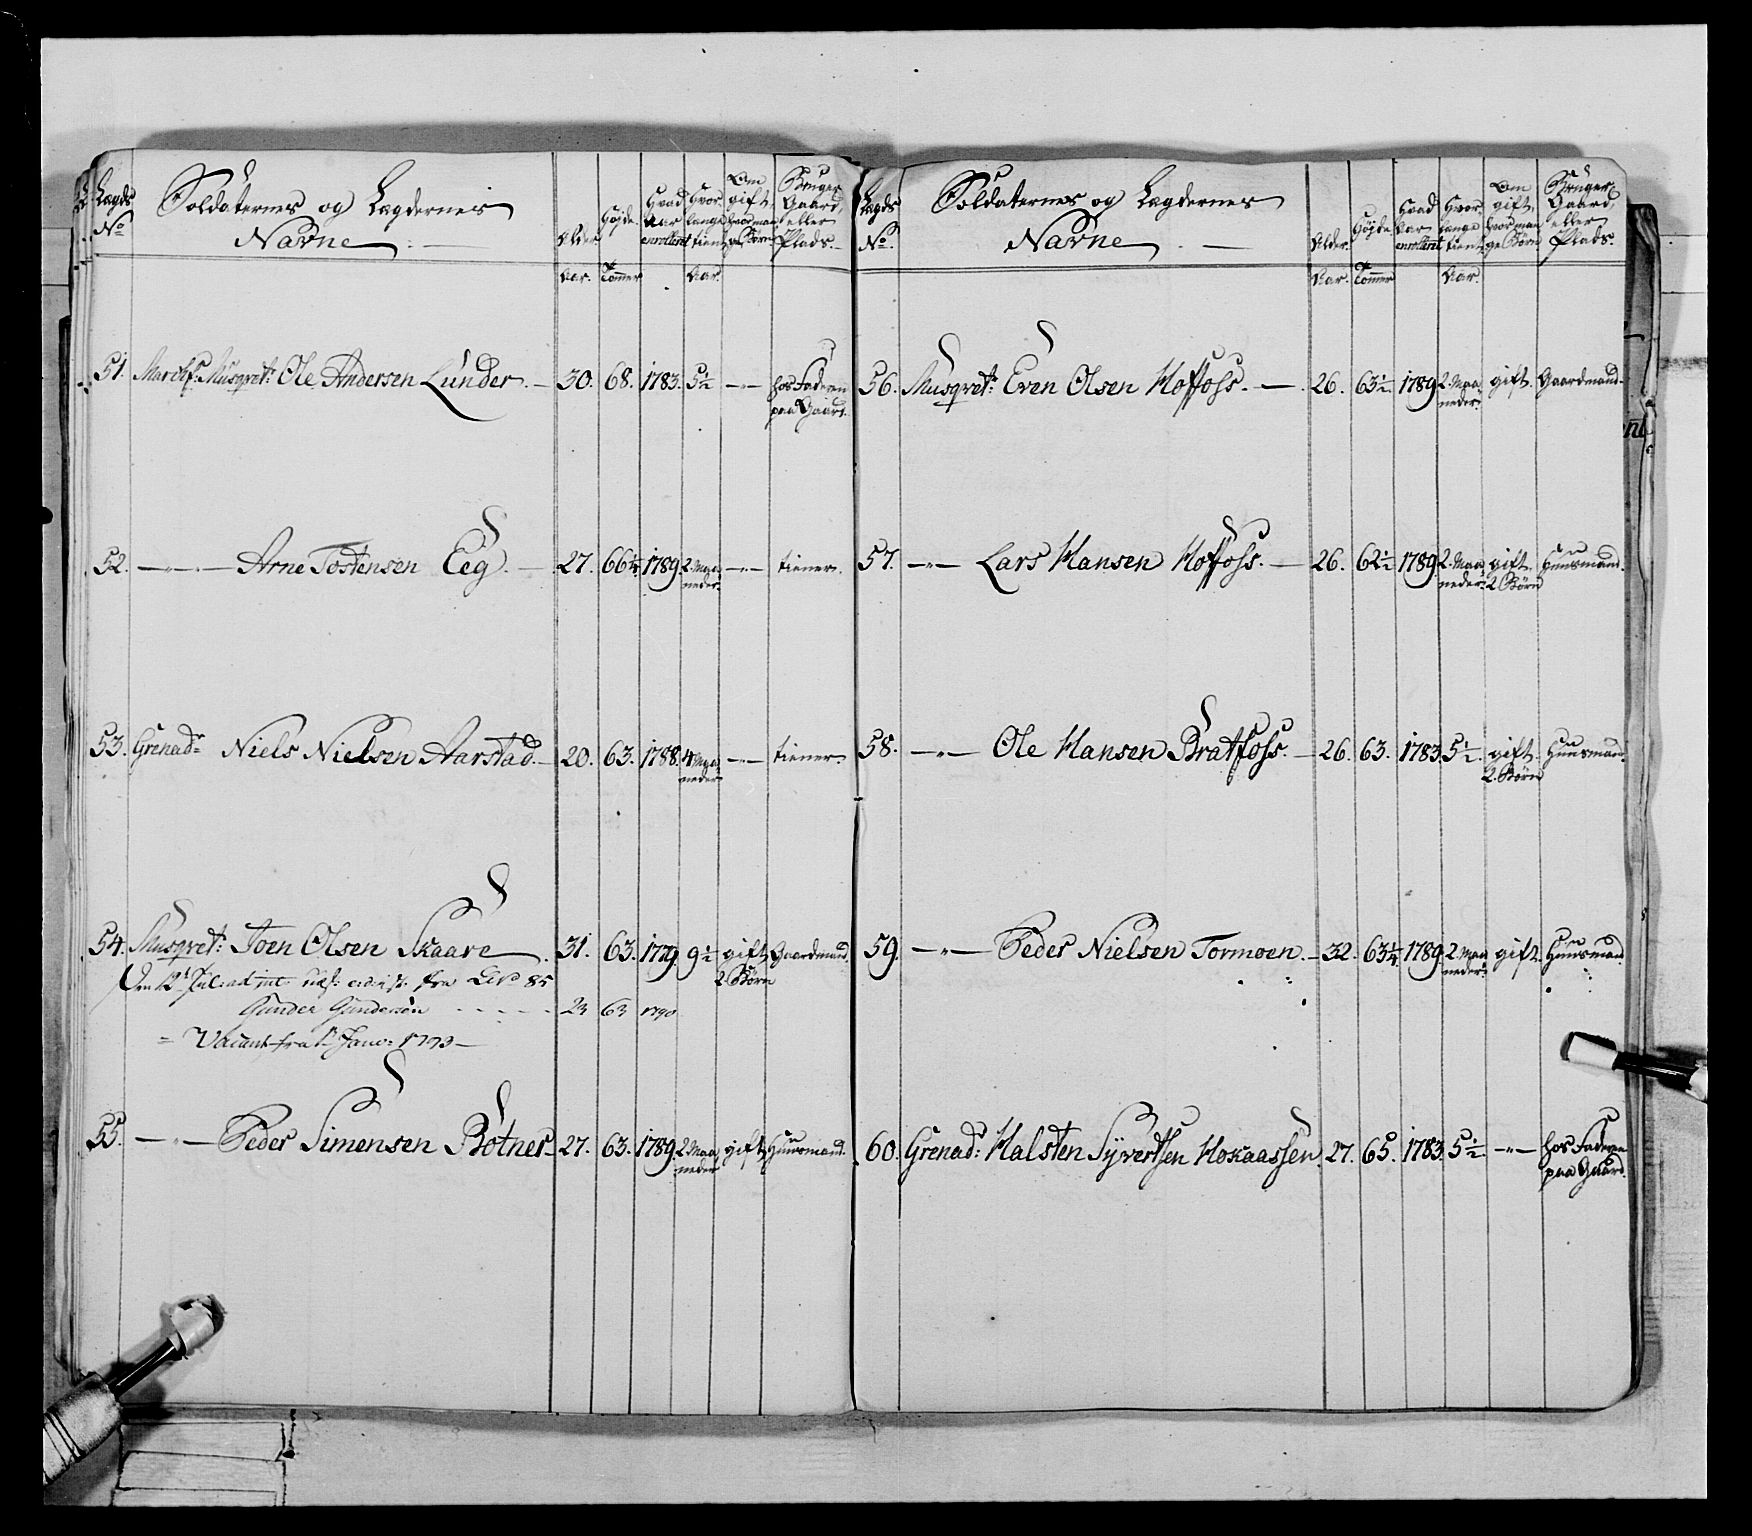 Lagds No | Soldaternes og Lægdernes Navne | Alder | Højde | Hvad Aar enrollert | Hvor lange tient | Om gift, hvor mange Børn | Bruger Gaard, eller Plads.
Aar. | Tommer | Aar.
51. Marckf: Musqret: Ole Andersen Lunder. — 30. 68. 1783. 5½ —"— hos Faderen
paa Gaard.
52. —"— Arne Tostensen Eeg. — 27. 66¼. 1789. 2. Maa —"— tiener.
neder.
53. Grenad: Niels Nielsen Aarstad. — 20. 63. 1788. 4 Maa —"— tiener
neder
54. Musqret: Joen Olsen Skaare 31. 63. 1779 9½ gift Gaardmand.
2. Børn
Den 12 Juli fra No 85
Gunder Gundersøn - - - - 23 63 1790
= Vacant fra 1 Janv: 1793 —
55. —"— Peder Simensen Bøtner 27. 63. 1789. 2. Maa gift Huusmand.
neder
Lagds No. | Soldaternes og Lægdernes Navne | Alder. | Højde | Hvad Aar enrollert | Hvor lange tient | Om gift, hvor mange Børn | Bruger Gaard, eller Plads.
Aar. | Tommer | Aar.
56. Musqret: Even Olsen Hoffoss. — 26. 63½. 1789 2. Maa gift. Gaardmand.
neder:
57. —"— Lars Hansen Hoffoss. — 26. 62½ 1789. 2. Maa gift. Huusmand.
neder: 2. Børn
58. —"— Ole Hansen Bratfoss. — 26. 63. 1783. 5½. gift. Huusmand.
2. Børn
59. —"— Peder Nielsen Tormoen. — 32. 63¼. 1789. 2. Maa gift. Huusmand
neder:
60. Grenad: Halsten Syvertsen Hokaassen. 27. 65. 1783. 5½. —"— hos Faderen
paa Gaard.